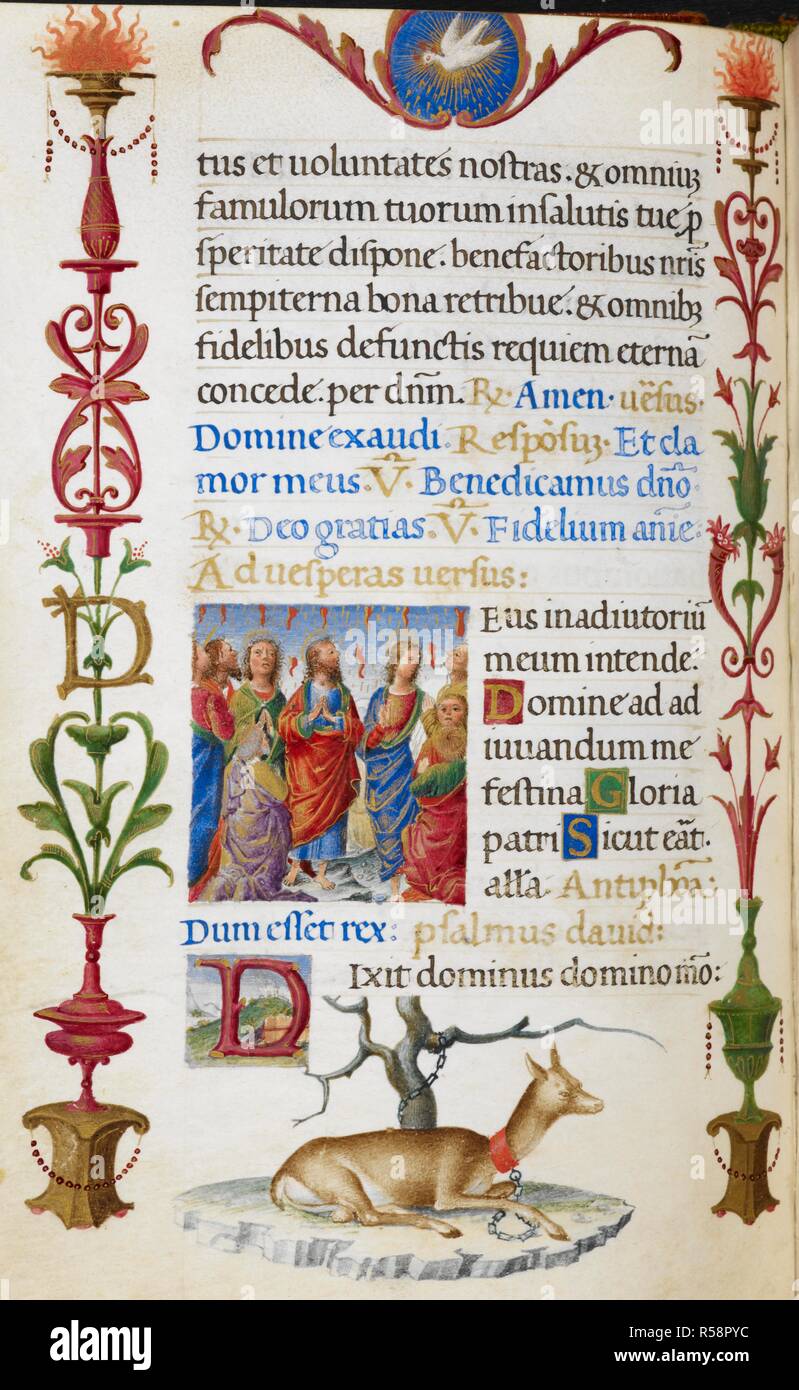 tus et uoluntates nostras. & omniuʒ
famulorum tuorum in salutis tue ꝓ
speritate dispone. benefactoribus nr̄is
sempiterna bona retribue. & omnibʒ
fidelibus defunctis requiem eternā
concede. per dn̄m. ℟. Amen. ue᷒sus.
Domine exaudi. Respōsuʒ. Et cla
mor meus. V̄. Benedicamus dn̄o.
℟. Deo gratias. V̄. Fidelium anīe.
Ad uesperas uersus:
D
Eus in adiutoriū
meum intende.
Domine ad ad
iuuandum me
festina Gloria
patri Sicut eāt.
alla. Antiphōa:
Dum esset rex: psalmus dauid:
DIxit dominus domino mō:
alamy
alamy
Image ID: R58PYC
www.alamy.com